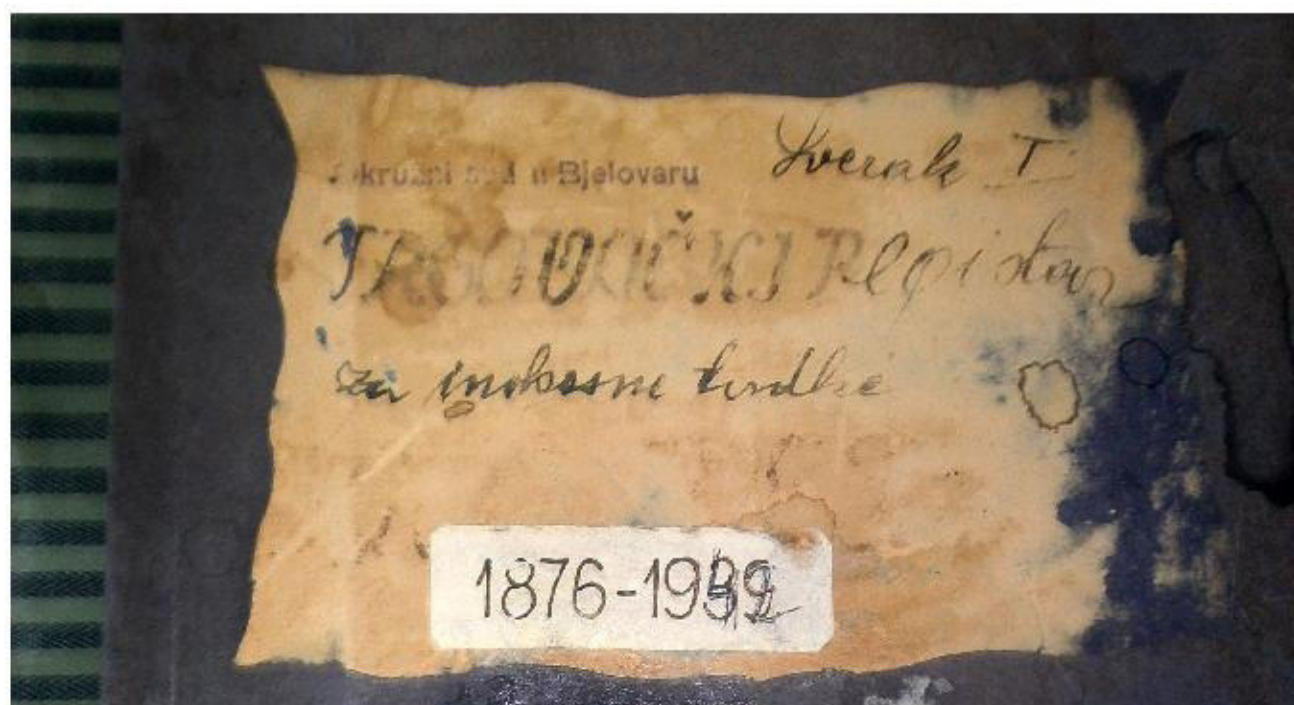 Okružni sud u Bjelovaru Svezak I
TRGOVAČKI Registar
za inokosne tvrdke
1876-19